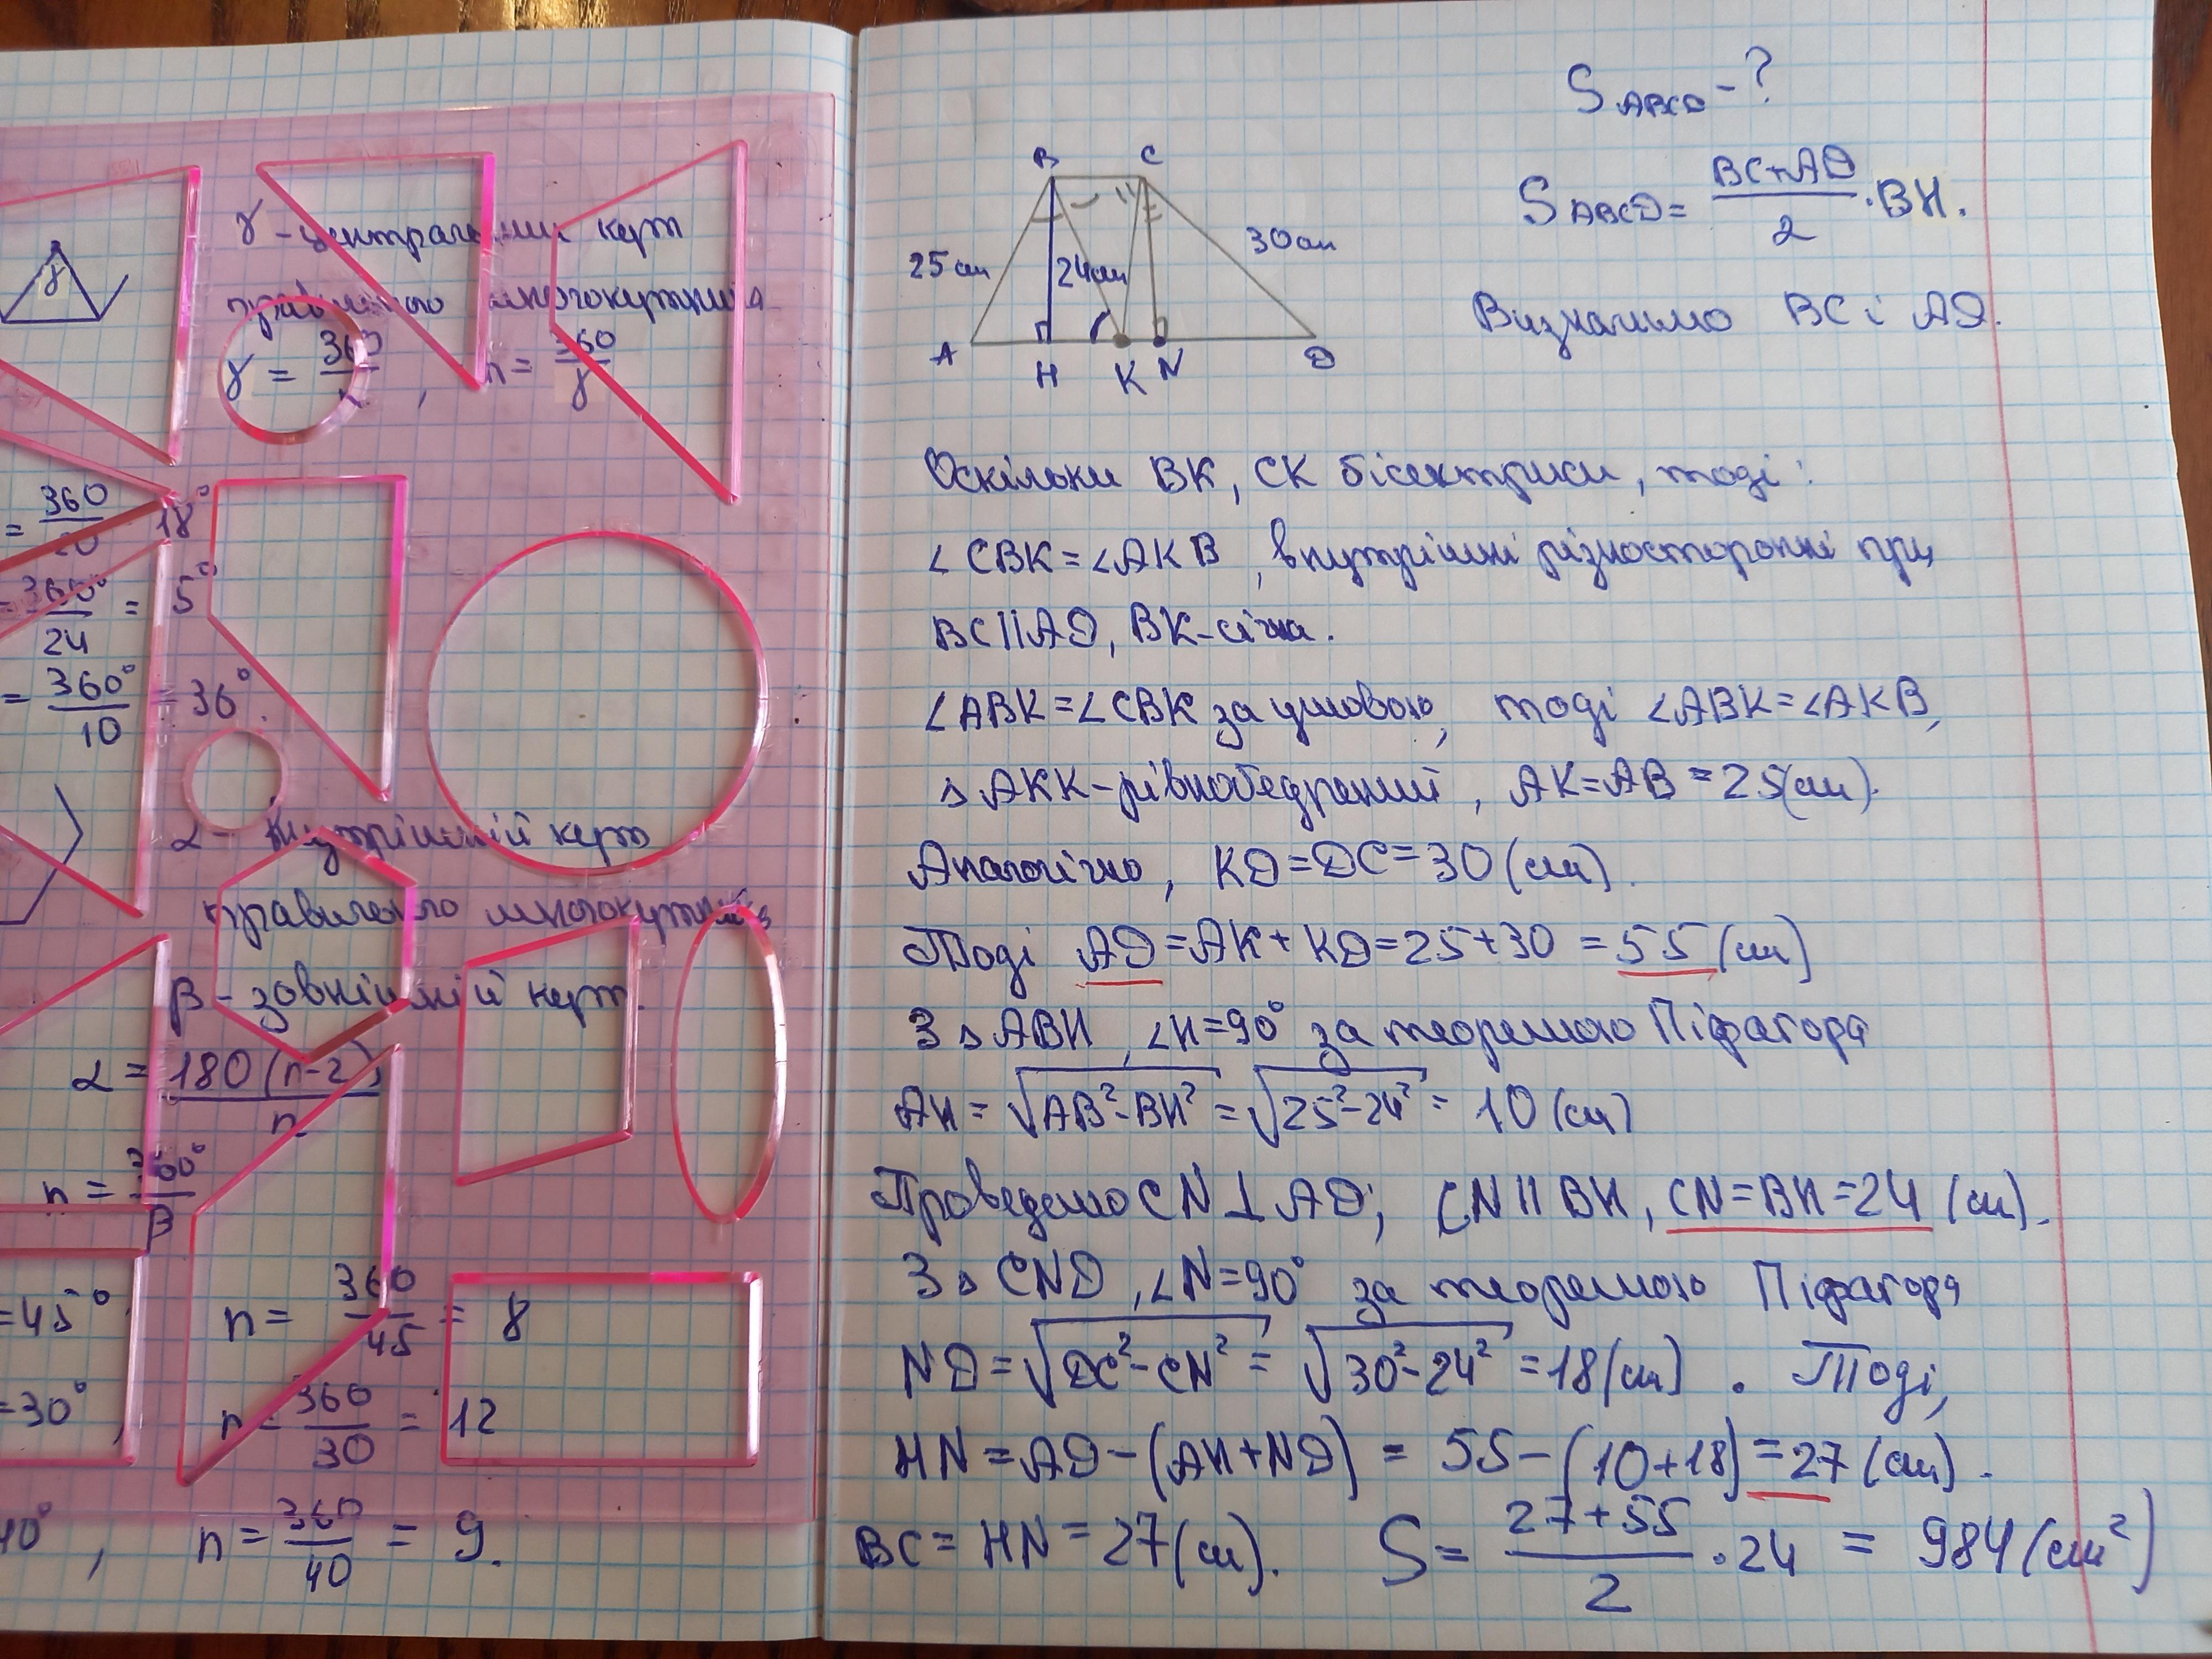 γ
γ - центральний кут
правильного многокутника
γ = 360/n, n = 360/γ
= 360/20 18°
= 360°/24 = 5°
= 360°/10 = 36°.
α - внутрішній кут
правильного многокутника
β - зовнішній кут.
α = 180(n-2)/n
n = 360°/β
=45° n = 360/45 = 8
=30°, n = 360/30 = 12
40°, n = 360/40 = 9.
S ABCD - ?
S ABCD = BC+AD/2 · BH.
Визначимо BC і AD.
B C
25 см 24 см 30 см
A H K N D
Оскільки BK, CK бісектриси, тоді:
∠CBK=∠AKB, внутрішні різносторонні при
BC||AD, BK-січна.
∠ABK=∠CBK за умовою, тоді ∠ABK=∠AKB,
△AKK-рівнобедрений, AK=AB=25(см).
Аналогічно, KD=DC=30(см).
Тоді AD=AK+KD=25+30=55(см)
З △ABH, ∠H=90° за теоремою Піфагора
AH=√AB²-BH²=√25²-24²=10(см)
Проведемо CN⊥AD; CN||BH, CN=BH=24(см).
З △CND, ∠N=90° за теоремою Піфагора
ND=√DC²-CN²=√30²-24²=18(см). Тоді,
HN=AD-(AH+ND)=55-(10+18)=27(см).
BC=HN=27(см). S=27+55/2·24=984(см²)